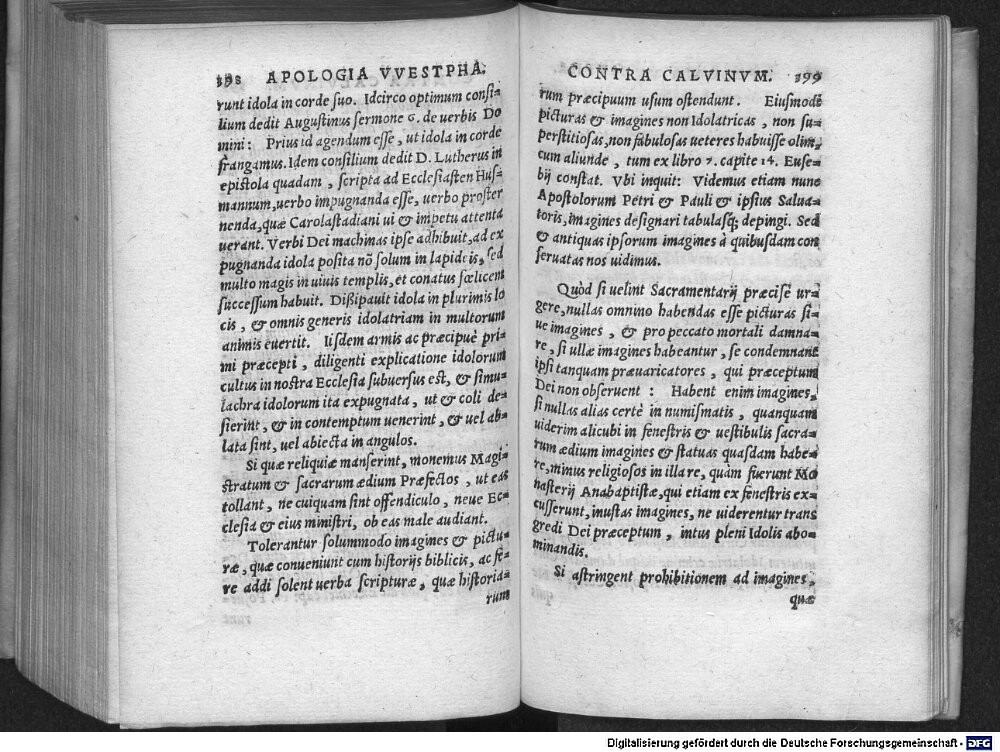 398 APOLOGIA VVESTPHA.
runt idola in corde suo. Idcirco optimum consi-
lium dedit Augustinus sermone 6. de uerbis Do
mini: Prius id agendum esse, ut idola in corde
frangamus. Idem consilium dedit D. Lutherus in
epistola quadam, scripta ad Ecclesiasten Hus-
mannum, uerbo impugnanda esse, uerbo proster
nenda, quæ Carolastadiani ui & impetu attenta
uerant. Verbi Dei machinas ipse adhibuit, ad ex
pugnanda idola posita nõ solum in lapideis, sed
multo magis in uiuis templis, et conatus fœlicem
successum habuit. Dißipauit idola in plurimis lo
cis, & omnis generis idolatriam in multorum
animis euertit. Iisdem armis ac præcipuè pri-
mi præcepti, diligenti explicatione idolorum
cultus in nostra Ecclesia subuersus est, & simu-
lachra idolorum ita expugnata, ut & coli de-
sierint, & in contemptum uenerint, & uel ab-
lata sint, uel abiecta in angulos.
Si quæ reliquiæ manserint, monemus Magi-
stratum & sacrarum ædium Præfectos, ut eas
tollant, ne cuiquam sint offendiculo, neue Ec-
clesia & eius ministri, ob eas male audiant.
Tolerantur solummodo imagines & pictu-
ræ, quæ conueniunt cum historijs biblicis, ac fe-
re addi solent uerba scripturæ, quæ historia-
rum
CONTRA CALVINVM. 399
rum præcipuum usum ostendunt. Eiusmodi
picturas & imagines non Idolatricas, non su-
perstitiosas, non fabulosas ueteres habuisse olim,
cum aliunde, tum ex libro 7. capite 14. Euse-
bij constat. Vbi inquit: Videmus etiam nunc
Apostolorum Petri & Pauli & ipsius Salua-
toris, imagines designari tabulasq; depingi. Sed
& antiquas ipsorum imagines à quibusdam con
seruatas nos uidimus.
Quòd si uelint Sacramentarij præcisè ur-
gere, nullas omnino habendas esse picturas si-
ue imagines, & pro peccato mortali damna-
re, si ullæ imagines habeantur, se condemnant
ipsi tanquam præuaricatores, qui præceptum
Dei non obseruent: Habent enim imagines,
si nullas alias certè in numismatis, quanquam
uiderim alicubi in fenestris & uestibulis sacra-
rum ædium imagines & statuas quasdam habe-
re, minus religiosos in illa re, quàm fuerunt Mo
nasterij Anabaptistæ, qui etiam ex fenestris ex-
cusserunt, inustas imagines, ne uiderentur trans
gredi Dei præceptum, intus pleni Idolis abo-
minandis.
Si astringent prohibitionem ad imagines,
quæ
Digitalisierung gefördert durch die Deutsche Forschungsgemeinschaft - DFG